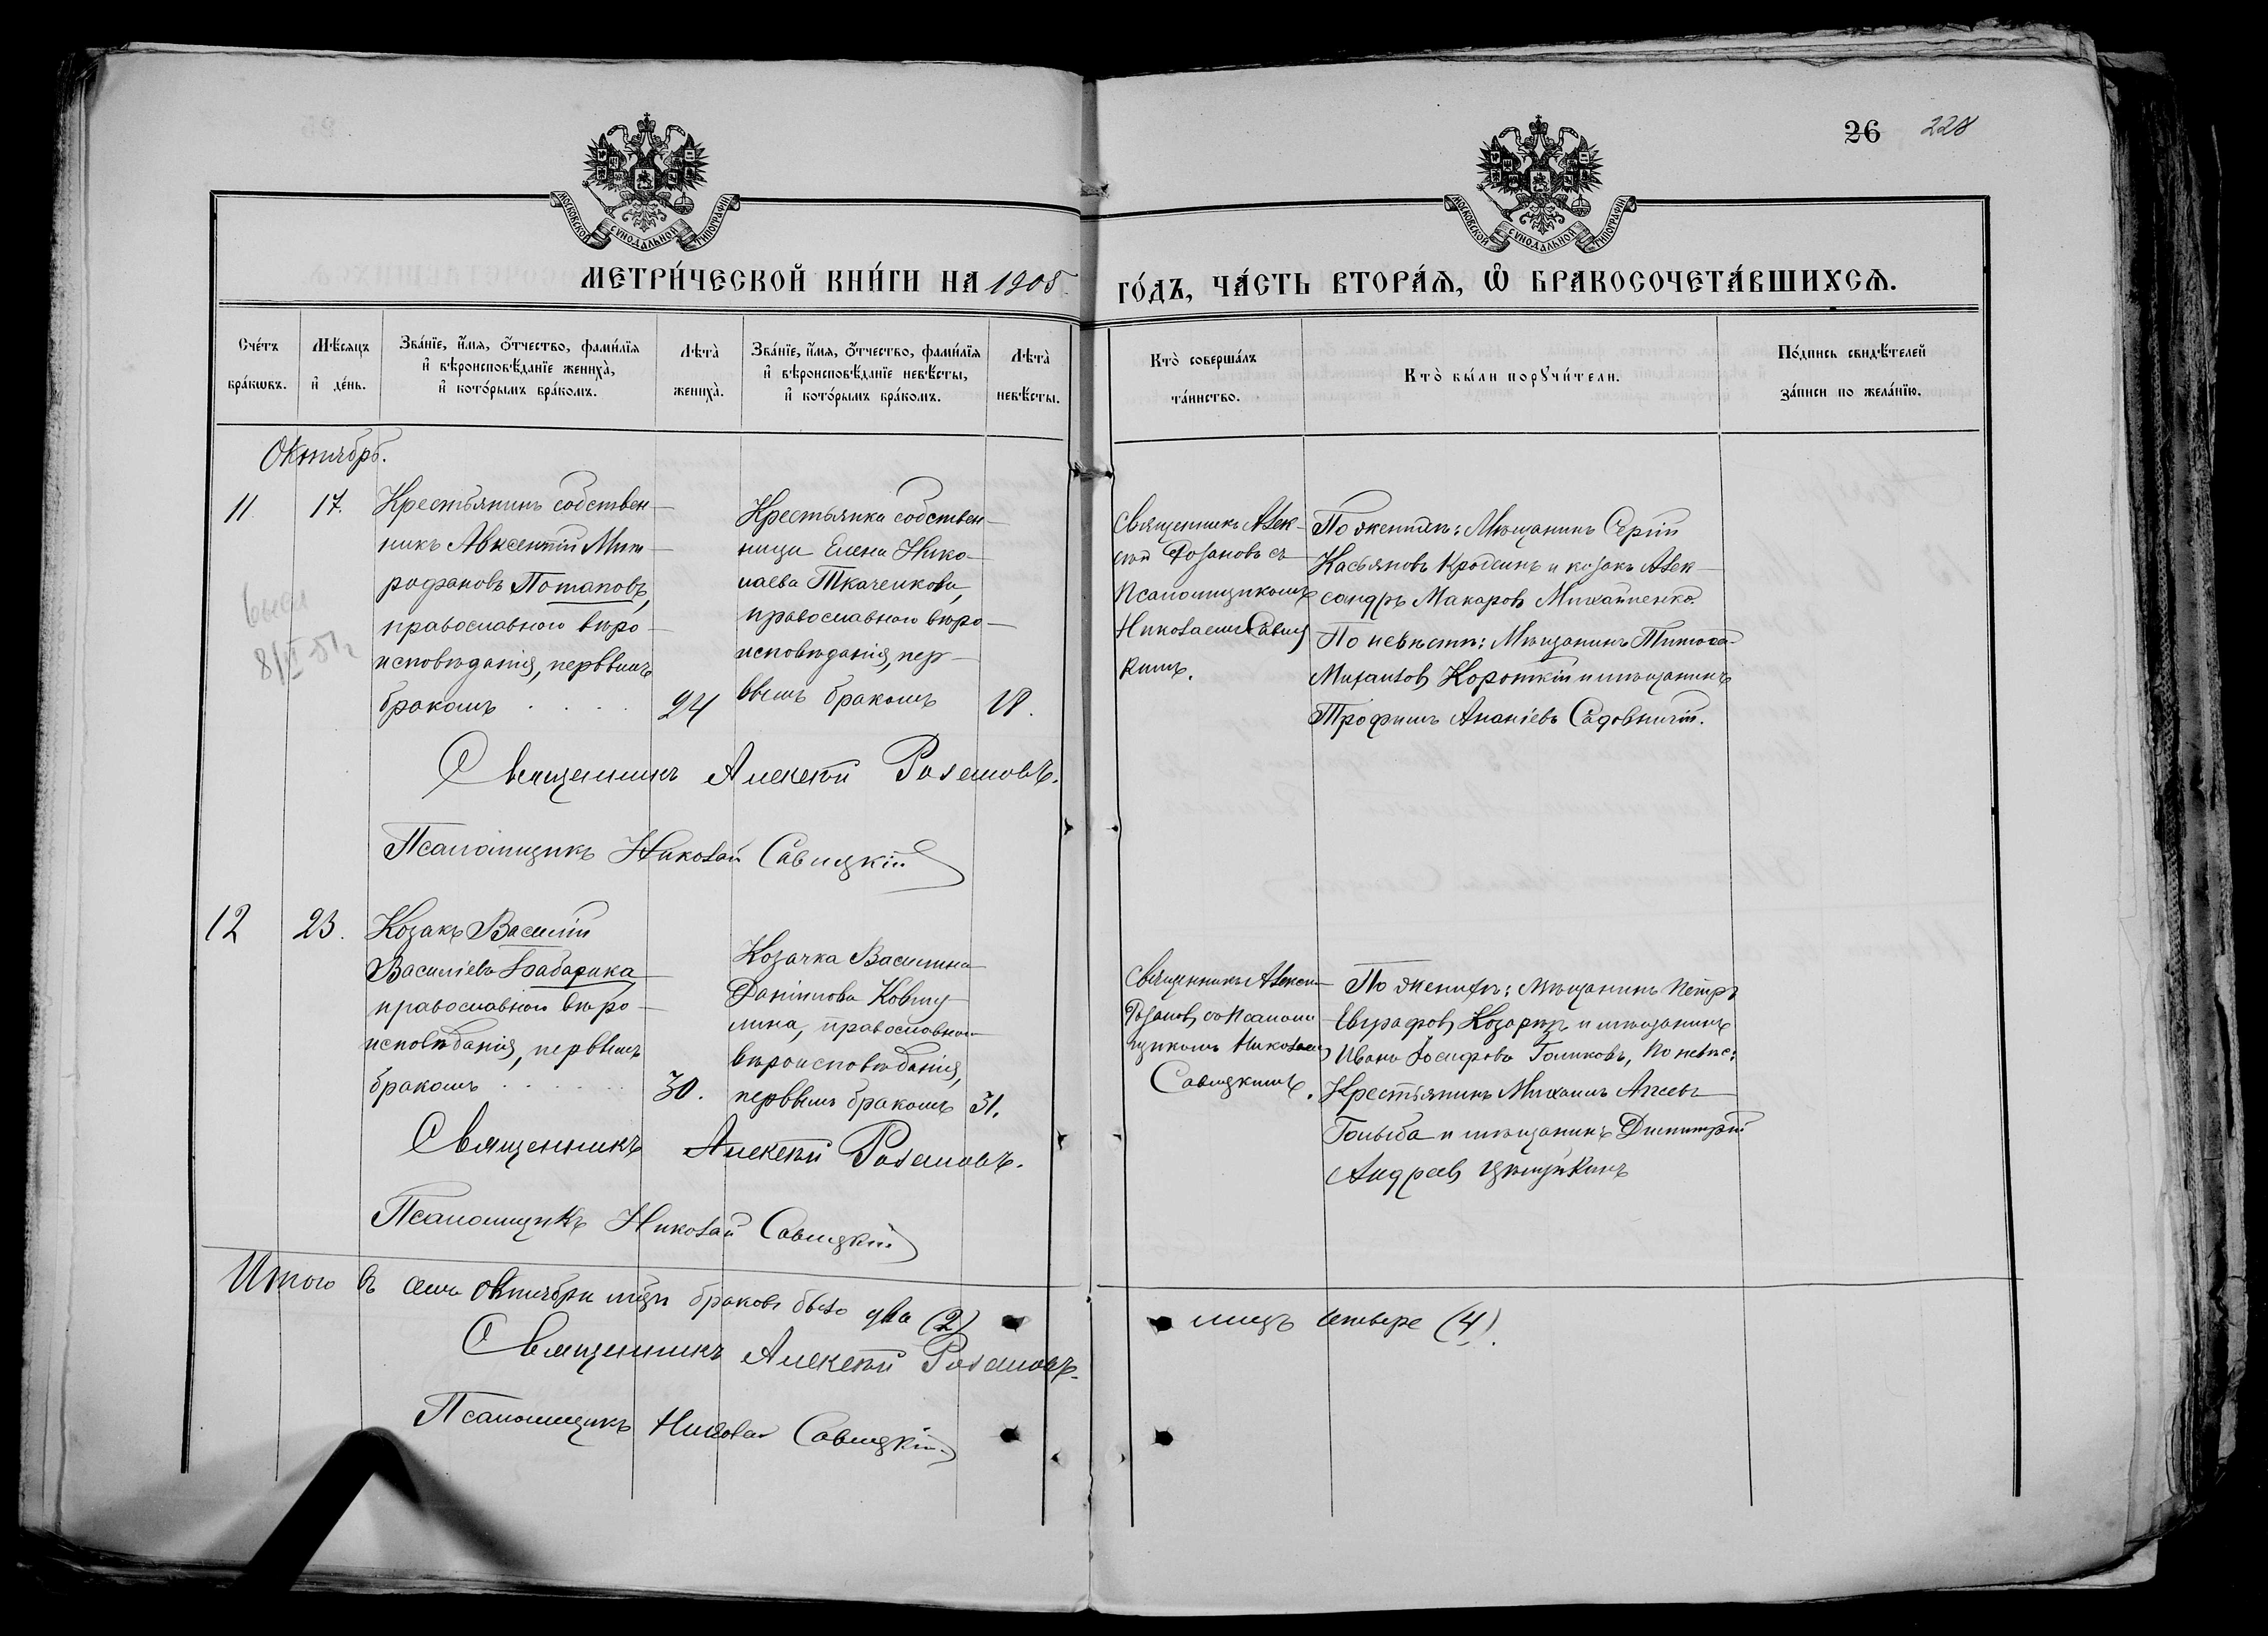 26 228
МОСКОВСКОЙ СѴНОДАЛЬНОЙ ТИПОГРАФІИ
МОСКОВСКОЙ СѴНОДАЛЬНОЙ ТИПОГРАФІИ
МЕТРИ́ЧЕСКОЙ КНИ́ГИ НА 1905 ГО́ДЪ, ЧА́СТЬ ВТОРА́Ѧ, Ѡ҆ БРАКОСОЧЕТА́ВШИХСѦ.
Сче́тъ
бра́кѡвъ.
Мѣ́сѧцъ
и҆ де́нь.
Зва́нїе, и҆́мѧ, ѻ҆́тчество, фами́лїѧ
и҆ вѣроисповѣ́данїе жениха̀,
и҆ кото́рымъ бра́комъ.
Лѣта̀
жениха̀.
Зва́нїе, и҆́мѧ, ѻ҆́тчество, фами́лїѧ
и҆ вѣроисповѣ́данїе невѣ́сты,
и҆ кото́рымъ бра́комъ.
Лѣта̀
невѣ́сты.
Кто̀ соверша́лъ
та́инство.
Кто̀ бы́ли порꙋчи́тели.
По́дпись свидѣ́телей
за́писи по жела́нїю.
Октябрь.
11
17.
Крестьянинъ собствен-
никъ Авксентій Мит-
рофановъ Потаповъ,
православнаго вѣро-
исповѣданія, первымъ
бракомъ . . . .
24
Крестьянка собствен-
ница Елена Нико-
лаева Ткаченкова,
православнаго вѣро-
исповѣданія, пер-
вымъ бракомъ
18.
Священникъ Алек-
сѣй Розановъ съ
Псаломщикомъ
Николаемъ Савиц
кимъ.
По женихѣ: Мѣщанинъ Сергій
Касьяновъ и козакъ Алек-
сандръ Макаровъ Михайленко.
По невѣстѣ: Мѣщанинъ
Михаиловъ Короткій и мѣщанинъ
Трофимъ Ананіевъ Садовничій.
8/II-51 г
Священникъ Алексѣй Розановъ.
Псаломщикъ Николай Савицкій
12
23.
Козакъ Василій
Василіевъ Бабарика
православнаго вѣро-
исповѣданія, первымъ
бракомъ . . . . . .
30.
Козачка Василина
Даніилова
православнаго
вѣроисповѣданія,
первымъ бракомъ
31.
Священникъ Алексѣй
Розановъ со Псалом
щикомъ Николаемъ
Савицкимъ.
По женихѣ: мѣщанинъ Петръ
Евграфовъ и мѣщанинъ
Иванъ Іосифовъ Голиковъ, По невѣс:
Крестьянинъ Михаилъ
и мѣщанинъ Димитрій
Андреевъ
Священникъ Алексѣй Розановъ.
Псаломщикъ Николай Савицкій
Итого въ семъ Октябрѣ мѣсяцѣ браковъ было два (2) лицъ четыре (4).
Священникъ Алексѣй Розановъ.
Псаломщикъ Николай Савицкій